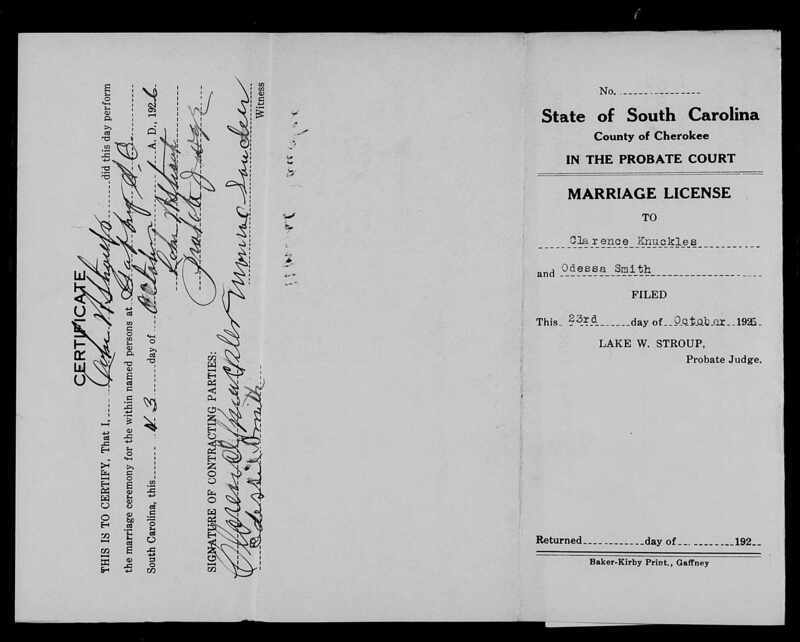 CERTIFICATE
THIS IS TO CERTIFY, That I, Lake W Stroup did this day perform
the marriage ceremony for the within named persons at Gaffney S.C.
South Carolina, this 23 day of October A. D., 1926
Lake W Stroup
Probate Judge
SIGNATURE OF CONTRACTING PARTIES:
Clarence Knuckles
Odessa Smith
Monroe
Witness
No.
State of South Carolina
County of Cherokee
IN THE PROBATE COURT
MARRIAGE LICENSE
TO
Clarence Knuckles
and Odessa Smith
FILED
This 23rd day of October 1926
LAKE W. STROUP,
Probate Judge.
Returned day of 192
Baker-Kirby Print., Gaffney